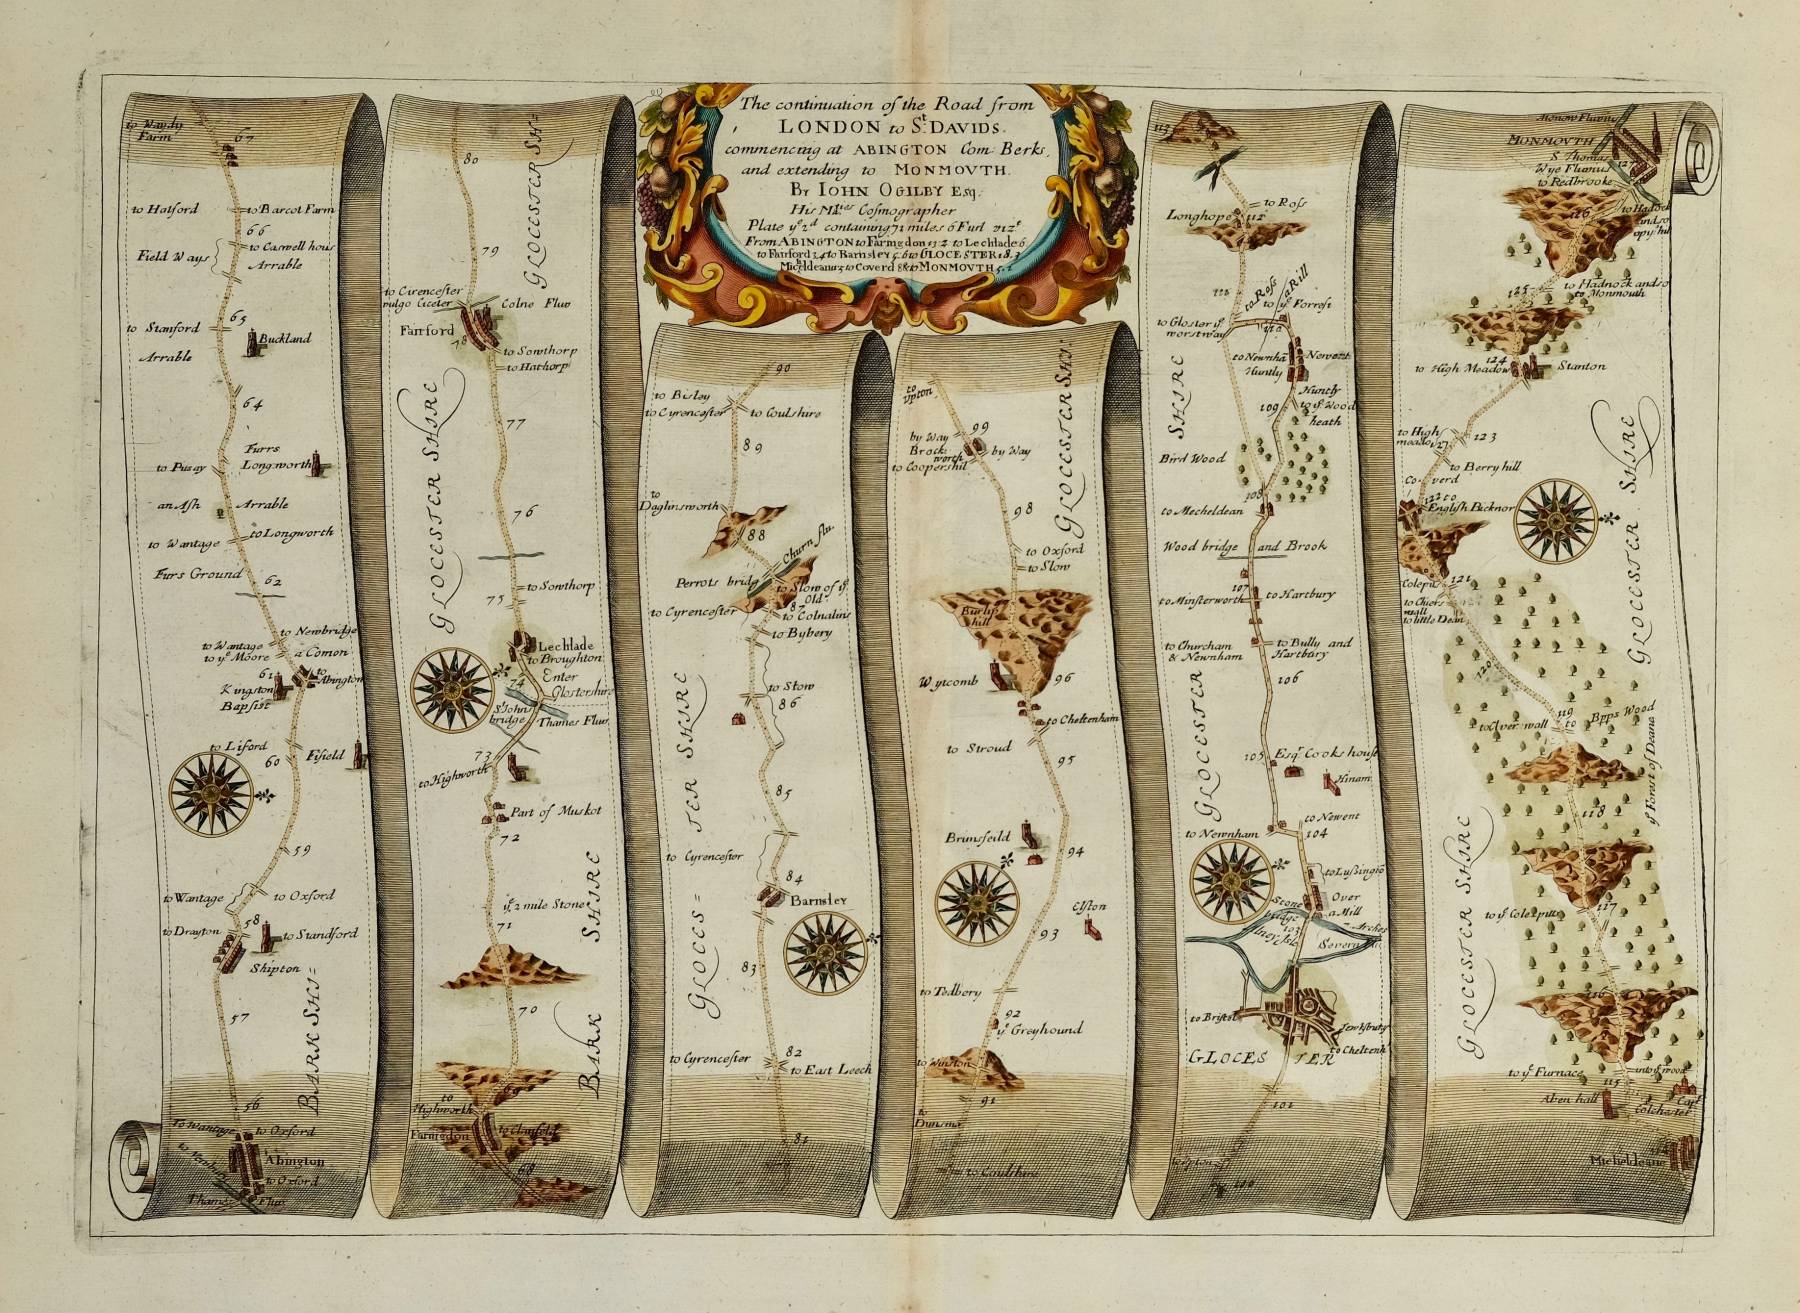 The continuation of the Road from
LONDON to St. DAVIDS.
commencing at ABINGTON Com: Berks,
and extending to MONMOVTH.
By IOHN OGILBY Esq.
His Maties Cosmographer
Plate ye 2d containing 71 miles 6 Furl
From ABINGTON to Faringdon 13'2 to Lechlade 6
to Fairford to Barnsley to GLOCESTER 18.3
to Coverd 8 & to MONMOVTH 5.2
to Waydy
Farm
67
to Hatford
to Barcot Farm
66
Field Ways
to Caswell hous
Arrable
65
to Stanford
Buckland
Arrable
64
Furrs
to Pusey
Longworth
an Ash
Arrable
to Wantage
to Longworth
Furs Ground
62
to Newbridge
to Wantage
to ye Moore
a Comon
61
to
Abington
Kingston
Bapsist
to Liford
60
Fifield
59
to Wantage
to Oxford
58
to Drayton
to Standford
Shipton
57
BARK SHI=
56
To Wantage
to Oxford
Abington
to Oxford
Thames Fluv
80
GLOCESTER SH=
79
to Cirencester
vulgo Ciceter
Colne Fluv
Fairford
78
to Sowthorp
to Hathorp
77
GLOCESTER SHIRE
76
to Sowthorp
75
Lechlade
to Broughton
Enter
Glostershire
74
St Johns
bridge
Thames Fluv.
73
to Highworth
Part of Muskot
72
ye 2 mile Stone
71
BARK SHIRE
70
69
to
Highworth
to Clanfeld
Faringdon
68
90
to Bisley
to Cyrencester
to Coulshire
89
to
Daglinsworth
88
Churn flu.
Perrots bridg
to Slow of ye
Old
to Cyrencester
87
to Colnalins
to Bybery
to Stow
86
85
to Cyrencester
84
Barnsley
GLOCES=TER SHIRE
83
82
to Cyrencester
to East Leech
81
to
Upton
99
by Way
Brock
worth
by Way
to Coopershil
GLOCESTER SHI:
98
to Oxford
to Slow
Burlip
hill
Wytcomb
96
to Cheltenham
to Stroud
95
Brimsfeild
94
Elston
93
to Tedbery
92
ye Greyhound
to Winston
91
to
to Coulshire
113
to Ross
Longhope
112
111
to Ross
a Rill
to ye Forrest
to Gloster ye
worst way
110
to Newnhā
Huntly
Huntly
109
to ye Wood
heath
Bird Wood
108
to Mecheldean
Wood bridge and Brook
107
to Minsterworth
to Hartbury
to Churcham
& Newnham
to Bully and
Hartbury
106
GLOCESTER SHIRE
105
Esqr Cooks house
Hinam
to Newnham
to Newent
104
to Lussington
Stone
bridge
Over
a Mill
103
7 Arches
to Bristol
Tewksbury
to Cheltenh
GLOCESTER
101
100
Monow Fluvius
MONMOVTH
St Thomas
Wye Fluvius
to Redbrooke
127
126
to Hadnock and so
to Monmouth
125
124
to High Meadow
Stanton
to High
meadow
123
to Berry hill
Coverd
122
to
English Bicknor
121
Colepit
to little Dean
120
119
Bpps Wood
118
ye Forest of Deane
117
to ye Colepitts
GLOCESTER SHIRE
GLOCESTER SHIRE
116
to ye Furnace
into ye wood
115
Aben hall
Capt
Colchester
Micheldeane
114